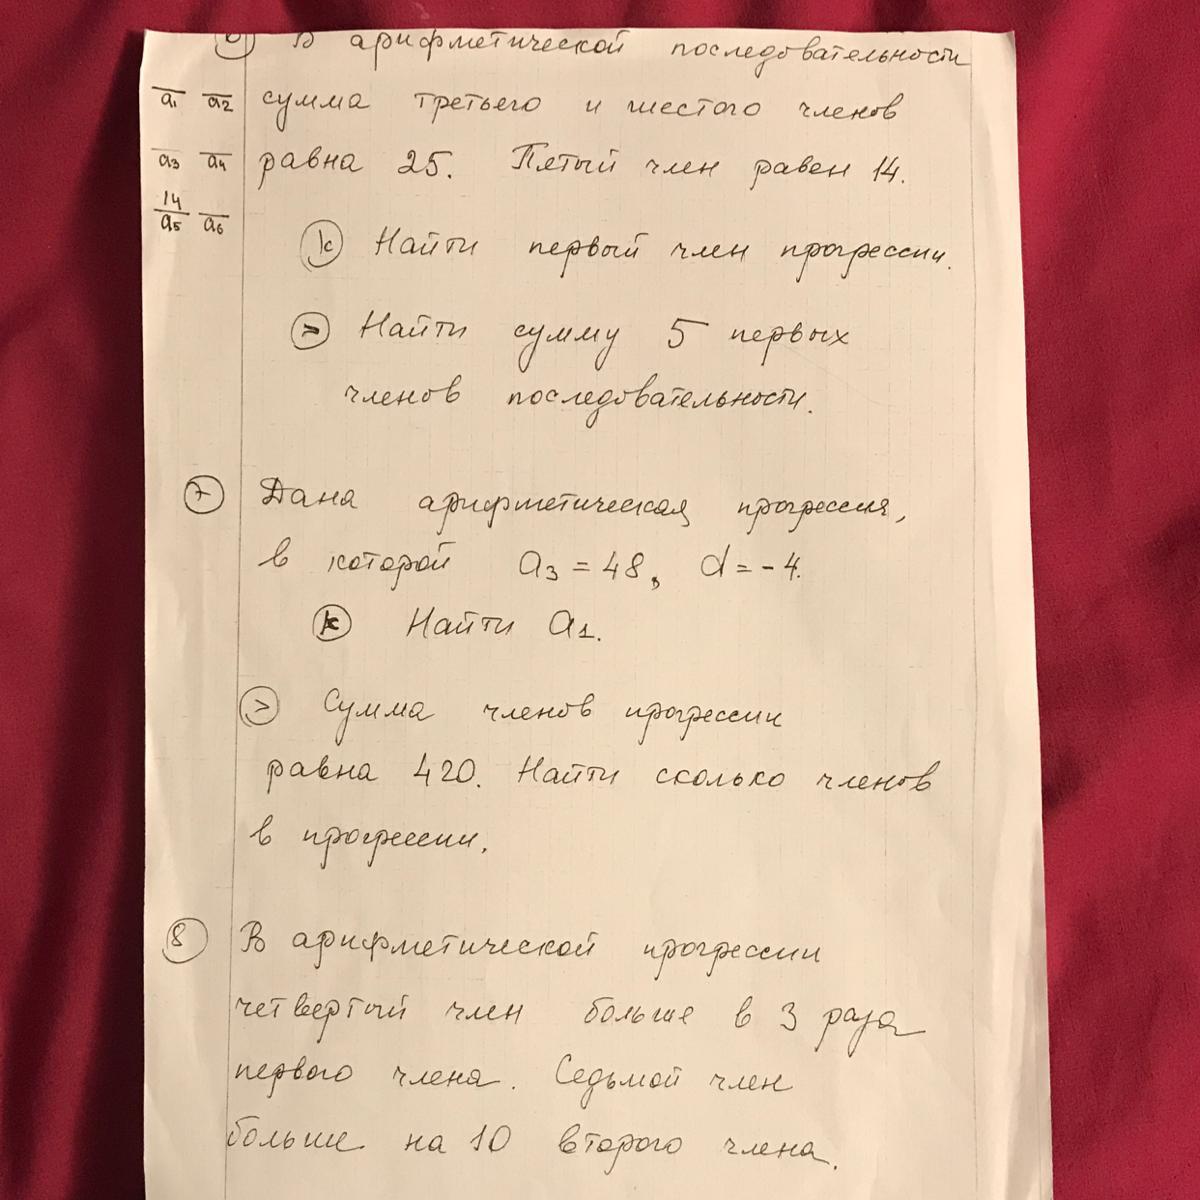 6 В арифметической последовательности
a1 a2 сумма третьего и шестого членов
a3 a4 равна 25. Пятый член равен 14.
14
a5 a6
к Найти первый член прогрессии.
Найти сумму 5 первых
членов последовательности.
7 Дана арифметическая прогрессия,
в которой a3 = 48, d = -4.
к Найти a1.
Сумма членов прогрессии
равна 420. Найти сколько членов
в прогрессии.
8 В арифметической прогрессии
четвертый член больше в 3 раза
первого члена. Седьмой член
больше на 10 второго члена.